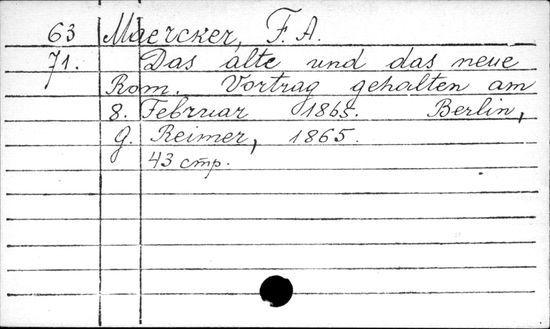 63 Maercker, F. A.
71. Das alte und das neue
Rom. Vortrag gehalten am
8. Februar 1865. Berlin,
G. Reimer, 1865.
43 стр.